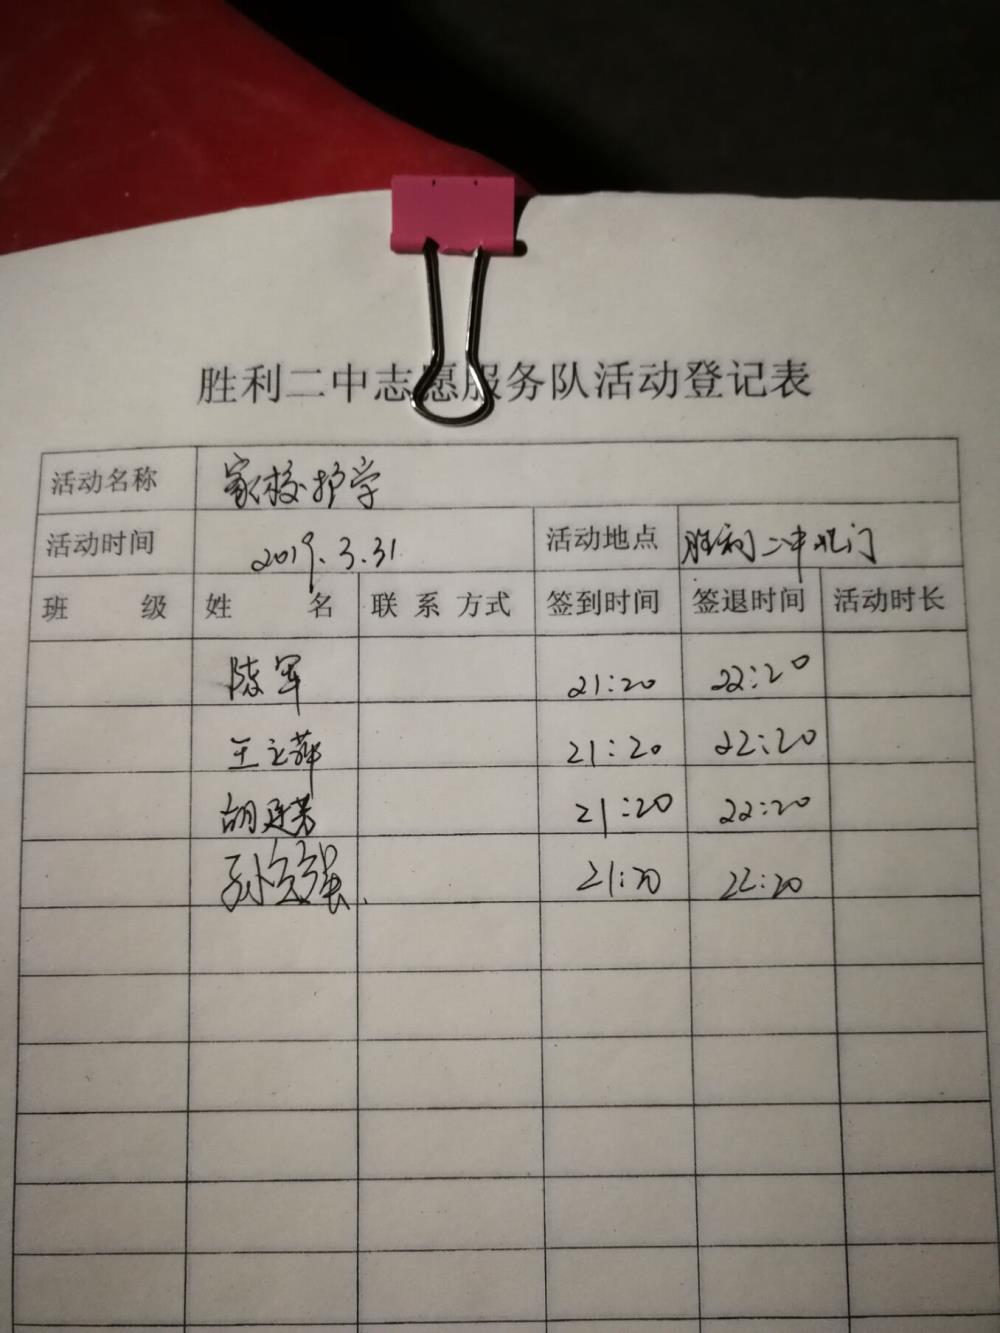 胜利二中志愿服务队活动登记表
活动名称 家校护学
活动时间 2019.3.31 活动地点 胜利二中北门
班 级 姓 名 联 系 方式 签到时间 签退时间 活动时长
陈军 21:20 22:20
王立萍 21:20 22:20
胡廷芳 21:20 22:20
孙立强 21:20 22:20